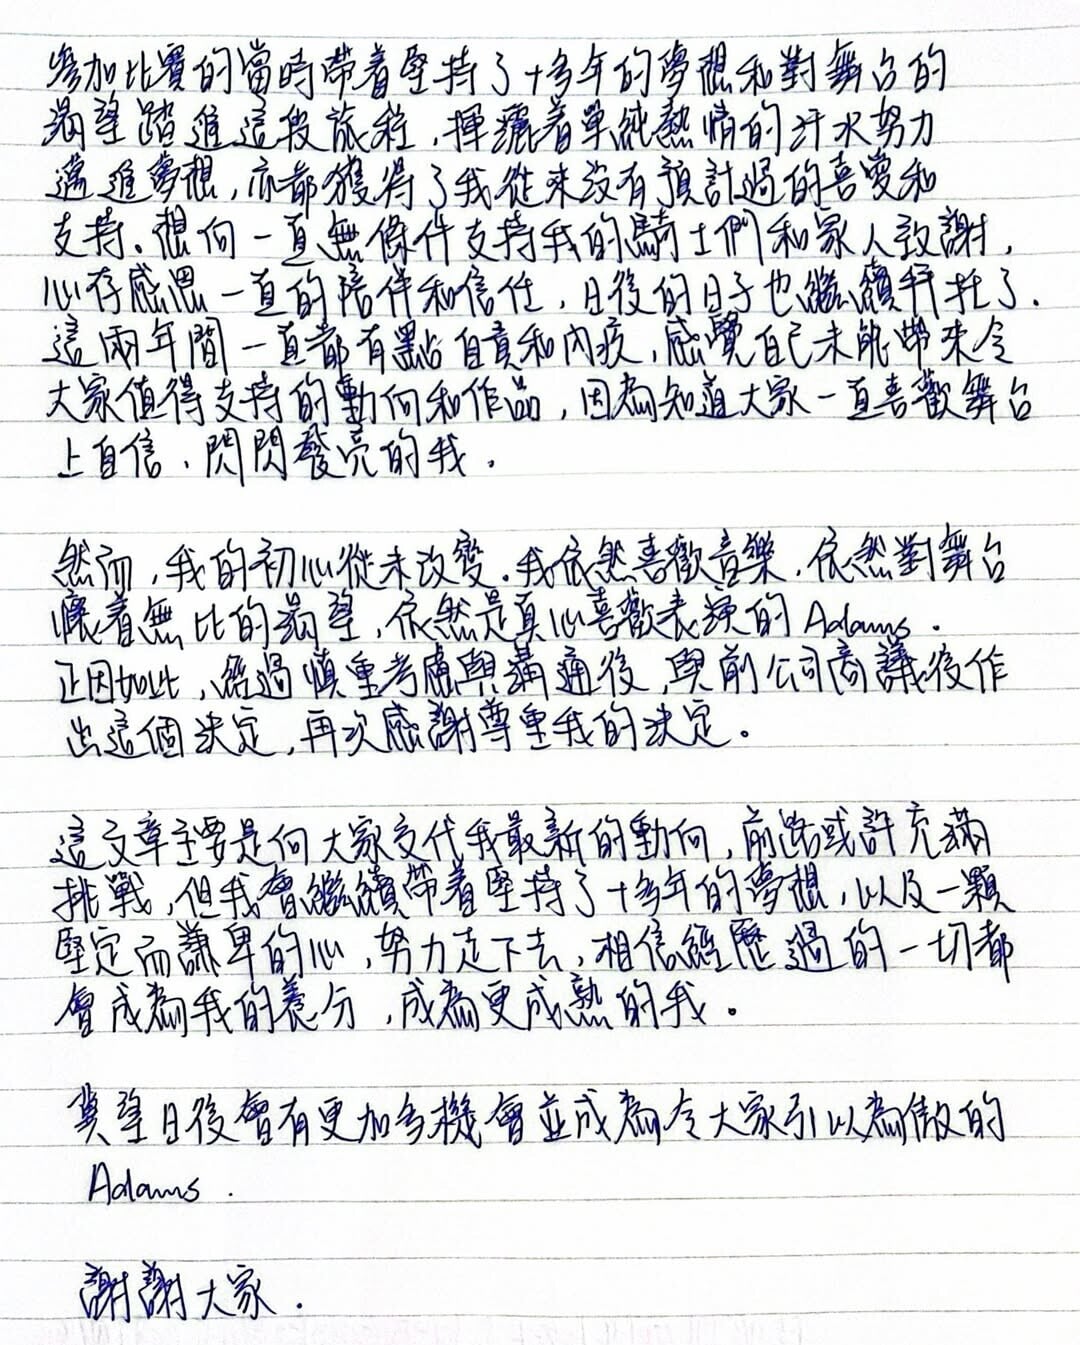 參加比賽的當時帶着堅持了十多年的夢想和對舞台的
渴望踏進這段旅程，揮灑着單純熱情的汗水努力
邁進夢想，亦都獲得了我從來沒有預計過的喜愛和
支持。想向一直無條件支持我的騎士們和家人致謝，
心存感恩一直的陪伴和信任，日後的日子也繼續拜託了。
這兩年間一直都有點自責和內疚，感覺自己未能帶來令
大家值得支持的動向和作品，因為知道大家一直喜歡舞台
上自信、閃閃發亮的我。
然而，我的初心從未改變。我依然喜歡音樂，依然對舞台
懷着無比的渴望，依然是真心喜歡表演的 Adams。
正因如此，經過慎重考慮與溝通後，與前公司商議後作
出這個決定，再次感謝尊重我的決定。
這文章主要是向大家交代我最新的動向，前路或許充滿
挑戰，但我會繼續帶着堅持了十多年的夢想，以及一顆
堅定而謙卑的心，努力走下去，相信經歷過的一切都
會成為我的養分，成為更成熟的我。
冀望日後會有更加多機會並成為令大家引以為傲的
Adams.
謝謝大家.